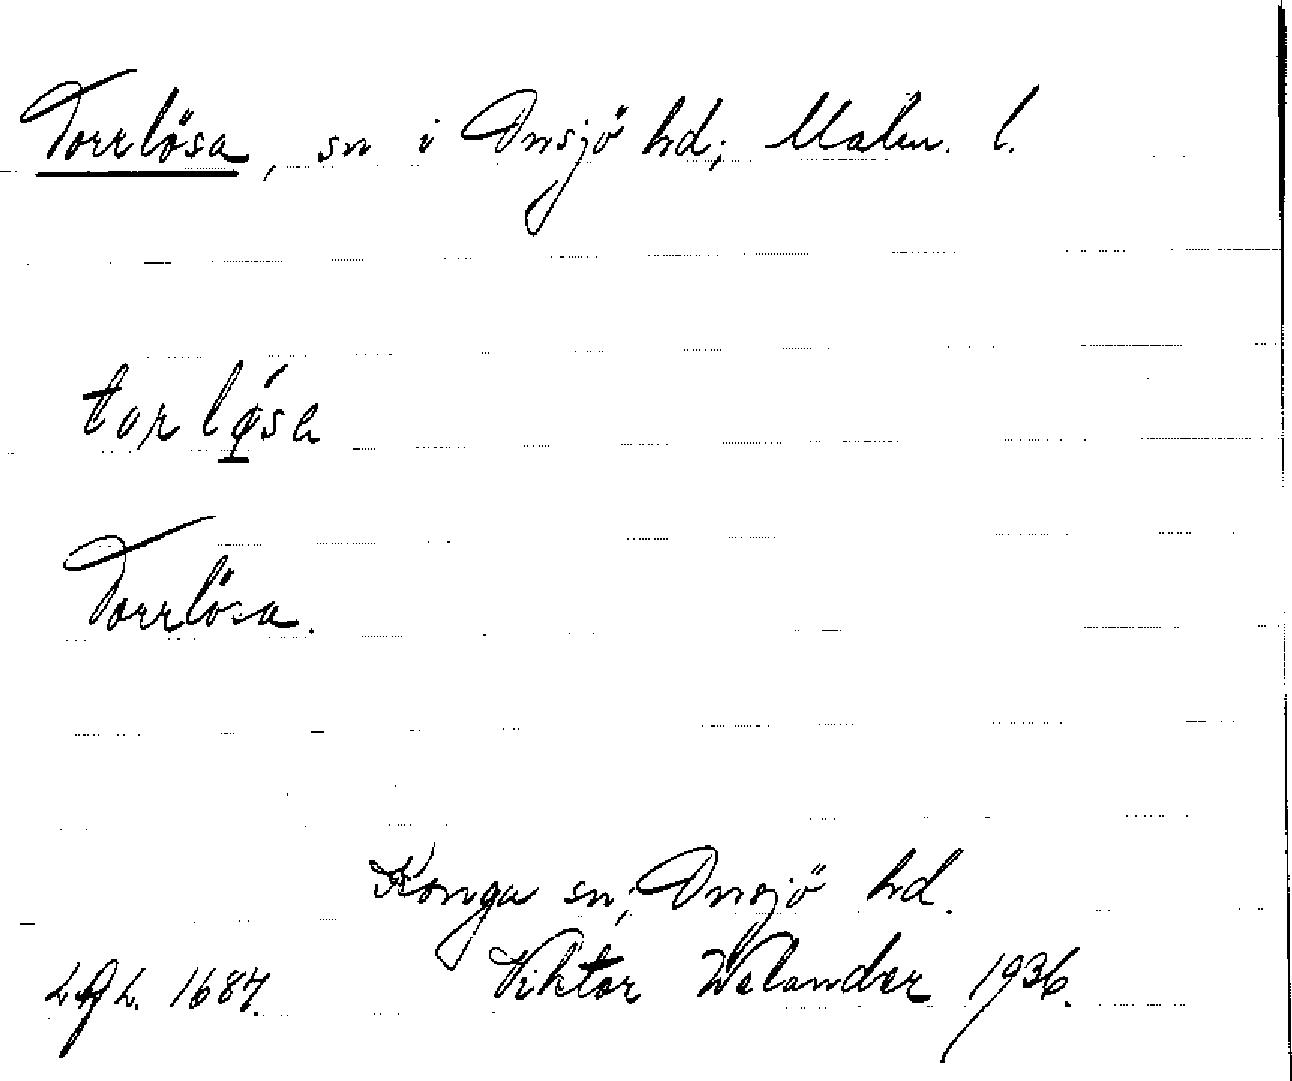 Torrlösa, sn i Onsjö hd; Malm. l.
torlǿ̱sa
Torrlösa.
Konga sn; Onsjö hd.
L.A.L. 1687. Viktor Welander 1936.